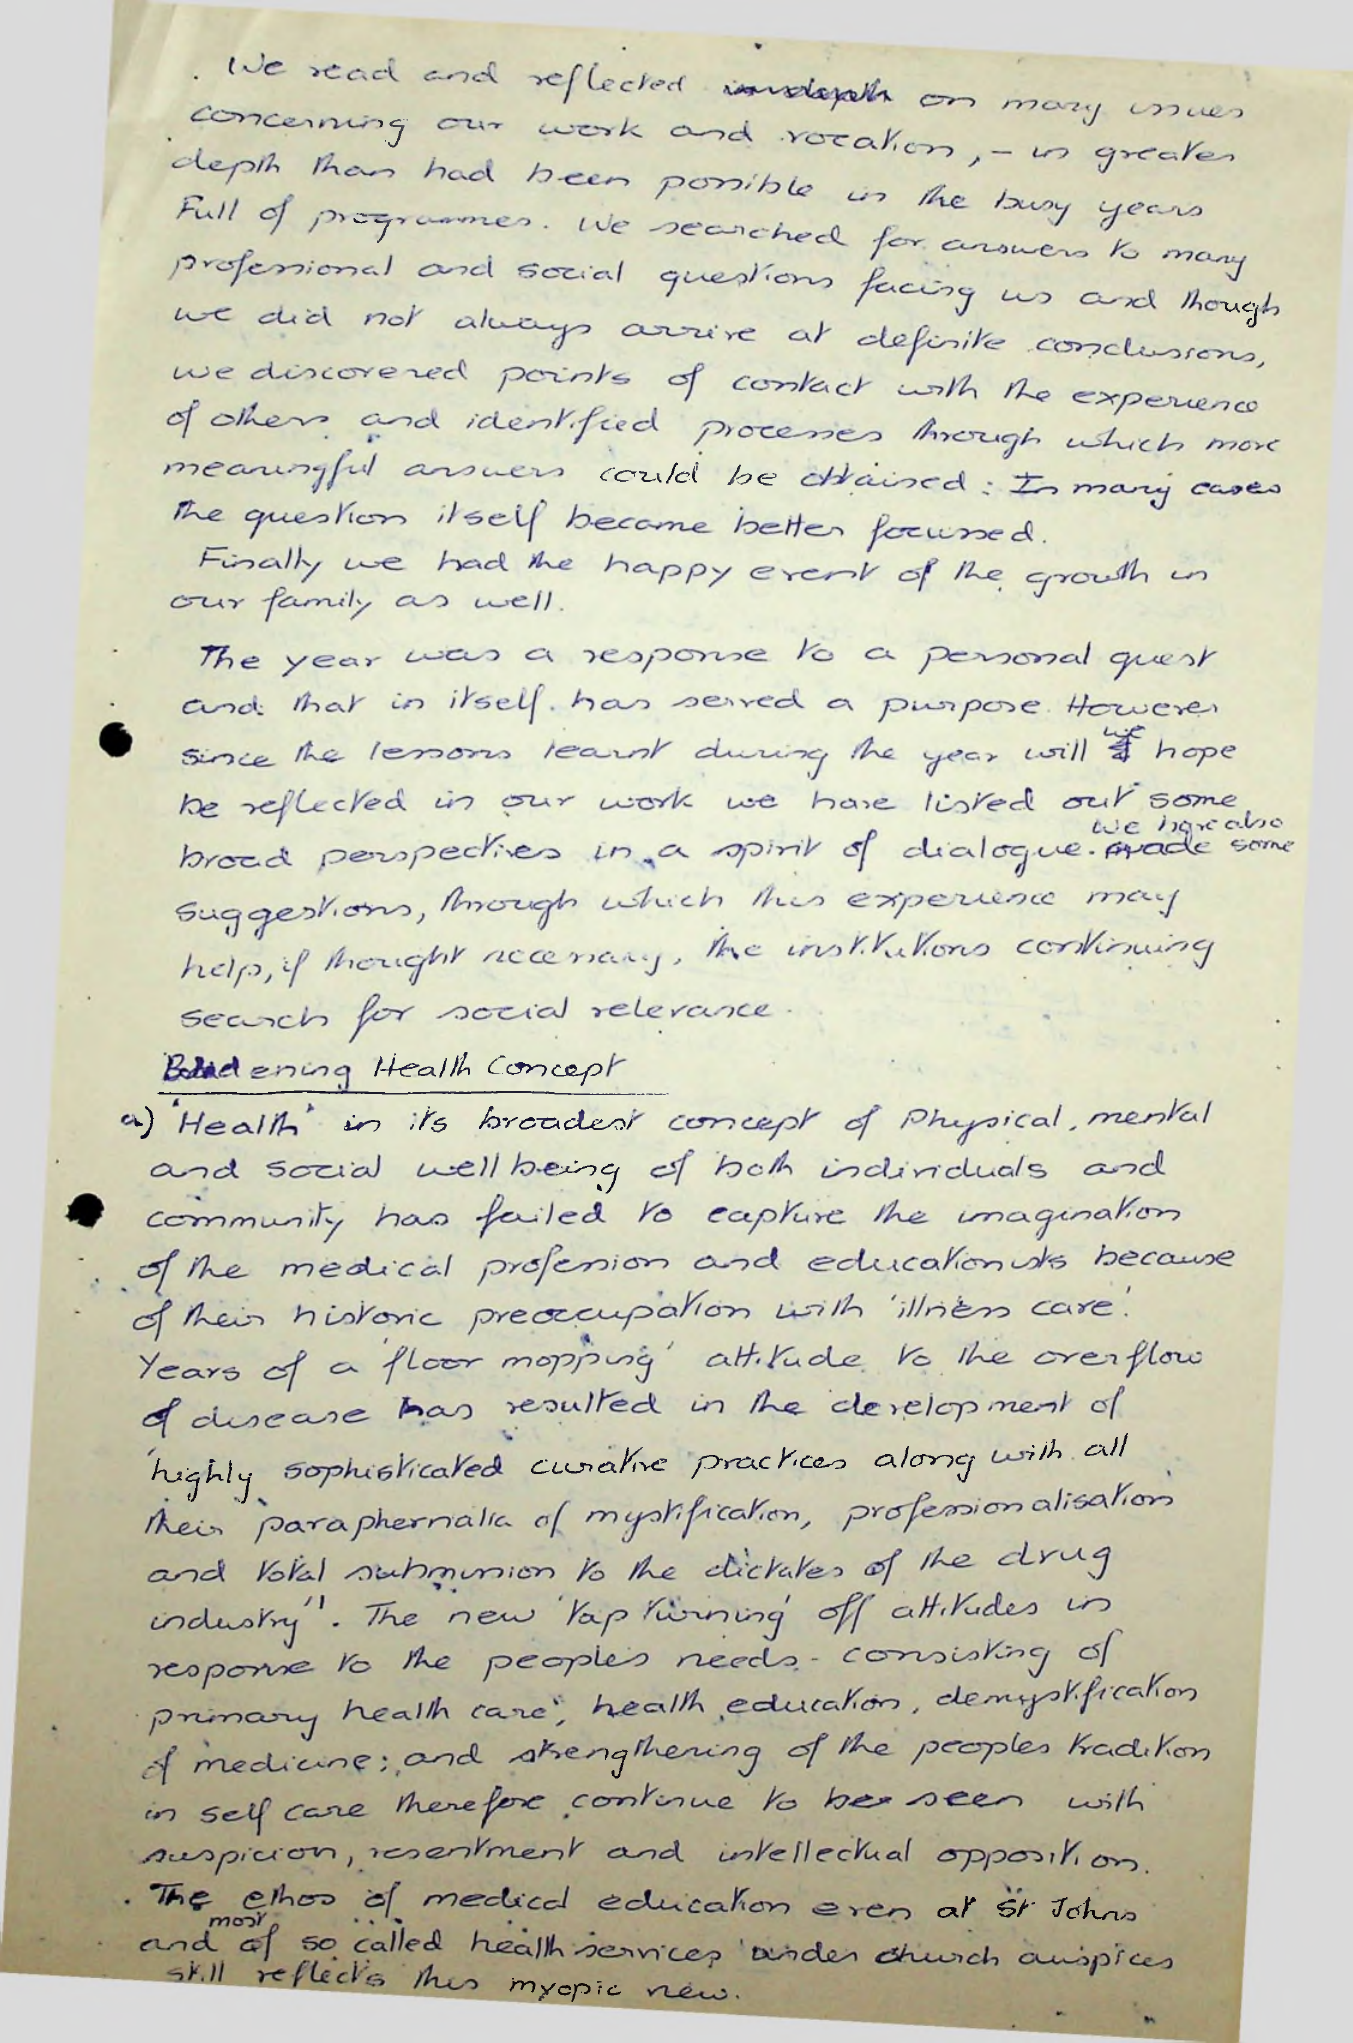 We read and reflected indepth on many issues
concerning our work and vocation, - in greater
depth than had been possible in the busy years
Full of programmes. We searched for answers to many
professional and social questions facing us and though
we did not always arrive at definite conclusions,
we discovered points of contact with the experience
of others and identified processes through which more
meaningful answers could be attained: In many cases
the question itself became better focussed.
Finally we had the happy event of the growth in
our family as well.
The year was a response to a personal quest
and that in itself has served a purpose. However
since the lessons learnt during the year will we hope
be reflected in our work we have listed out some
broad perspectives in a spirit of dialogue. We have also made some
suggestions, through which this experience may
help, if thought necessary, the institutions continuing
search for social relevance.
Broadening Health Concept
a) 'Health' in its broadest concept of Physical, mental
and social wellbeing of both individuals and
community has failed to capture the imagination
of the medical profession and educationists because
of their historic preoccupation with 'illness care'.
Years of a 'floor mopping' attitude to the overflow
of disease has resulted in the development of
'highly sophisticated curative practices along with all
their paraphernalia of mystification, professionalisation
and total submission to the dictates of the drug
industry". The new 'tap turning' off attitudes in
response to the peoples needs - consisting of
primary health care, health education, demystification
of medicine; and strengthering of the peoples tradition
in self care therefore continue to be seen with
suspicion, resentment and intellectual opposition.
The ethos of medical education even at St Johns
and most of so called health services under church auspices
still reflects this myopic view.